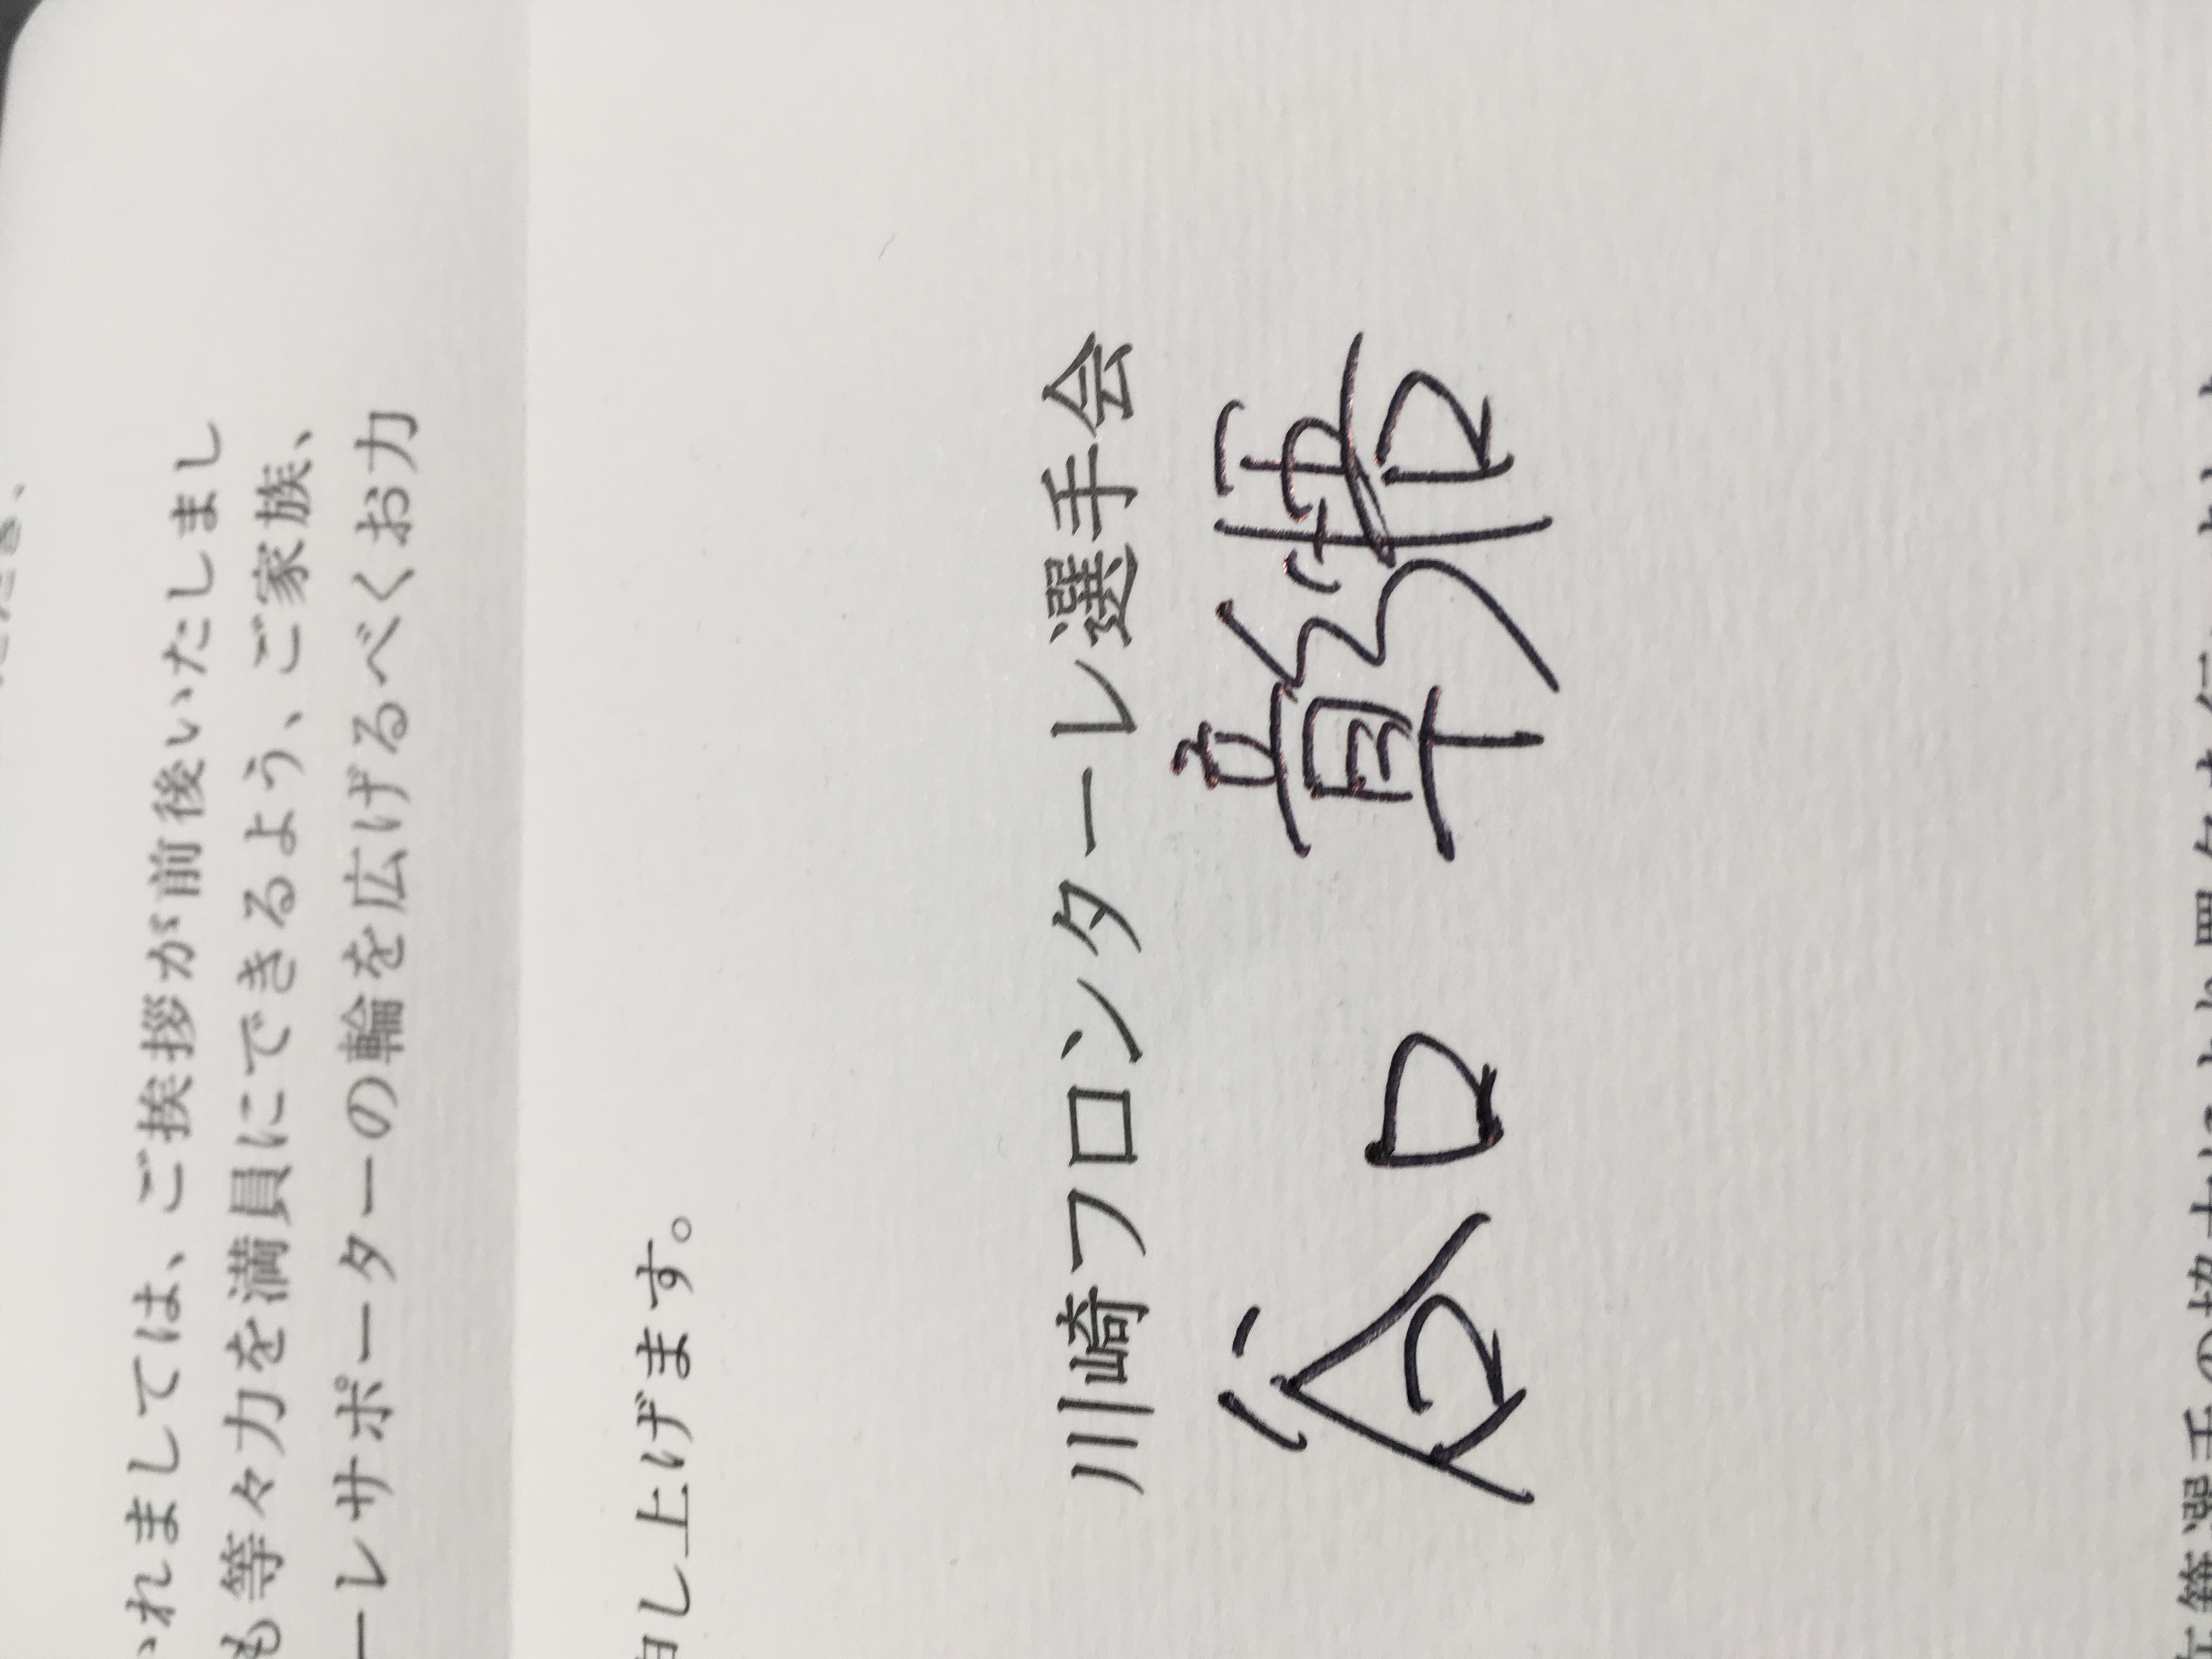 いれましては、ご挨拶が前後いたしまし
も等々力を満員にできるよう、ご家族、
ーレサポーターの輪を広げるべくお力
申し上げます。
川崎フロンターレ選手会
谷口 彰悟